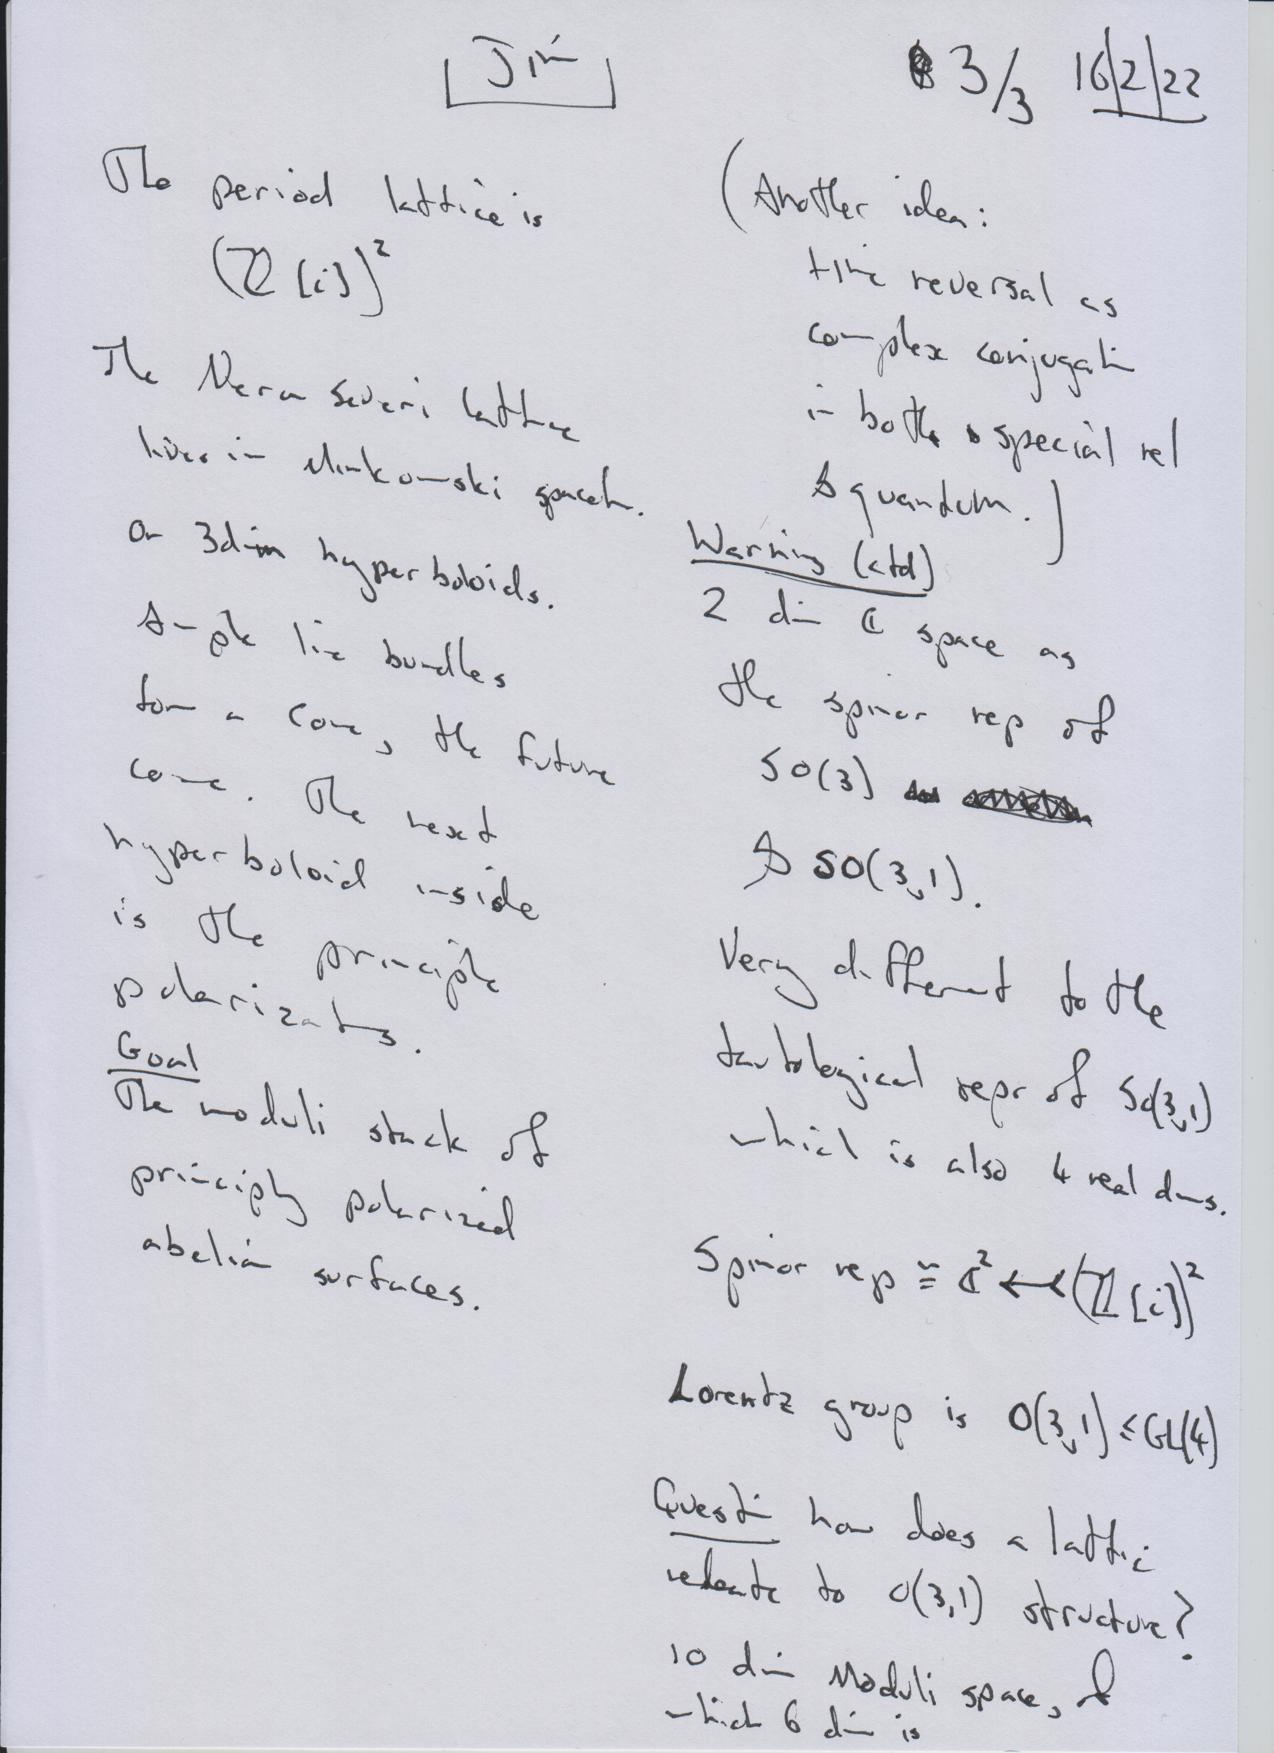 Jim
3/3 16/2/22
The period lattice is
(ℤ[i])²
The Neron Severi lattice
lives in Minkowski spacetm.
On 3dim hyperboloids.
Ample line bundles
form a cone, the future
cone. The next
hyperboloid inside
is the principle
polarizatns.
Goal
The moduli stack of
principly polarized
abelian surfaces.
(Another idea:
time reversal as
complex conjugatn
in both special rel
& quantum.)
Warning (ctd)
2 dim ℂ space as
the spinor rep of
SO(3)
& SO(3,1).
Very different to the
tautological repr of SO(3,1)
which is also 4 real dims.
Spinor rep ≅ ℂ² ↔ (ℤ[i])²
Lorentz group is O(3,1) ≤ GL(4)
Questin how does a lattice
relate to O(3,1) structure?
10 dim Moduli space, of
which 6 dim is